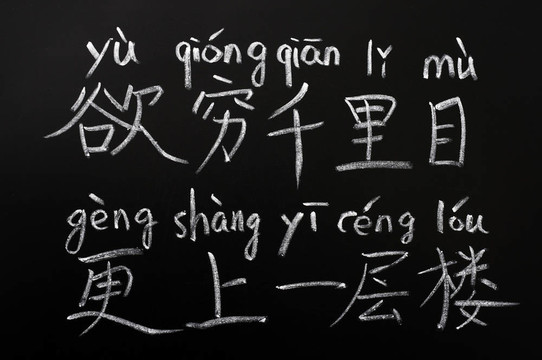 yù qióng qiān lǐ mù
欲穷千里目
gèng shàng yī céng lóu
更上一层楼